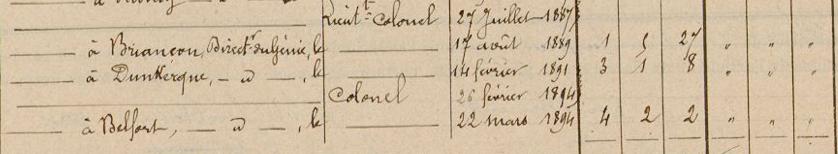 Lieut.t Colonel 27 Juillet 1887
— à Briançon, Direct.r du Génie, le — 17 août 1889 1 5 27 " " "
— à Dunkerque, — d° — , le — 14 février 1891 3 1 8 " " "
Colonel 26 février 1894
— à Belfort, — d° — , le — 22 mars 1894 4 2 2 " " "